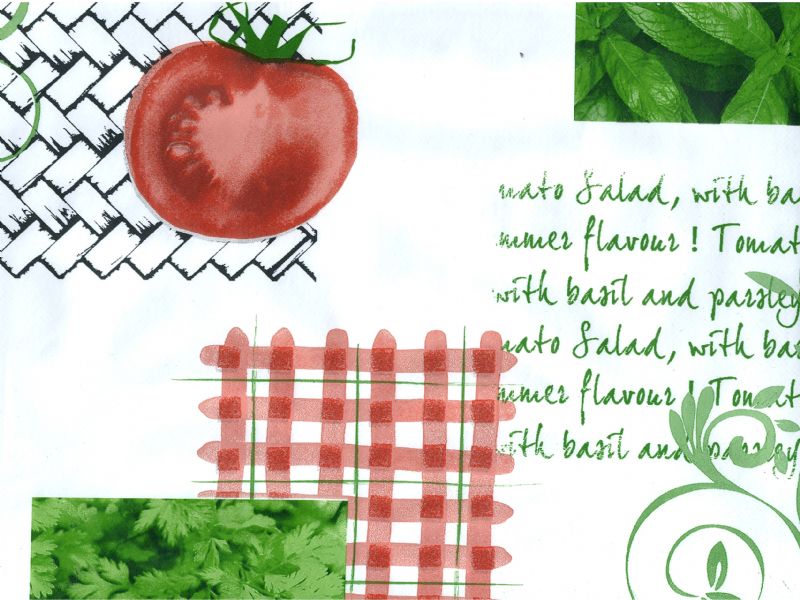 mato Salad, with ba
mmer flavour ! Tomat
with basil and parsley
mato Salad, with bas
mmer flavour ! Tomat
with basil and parsley